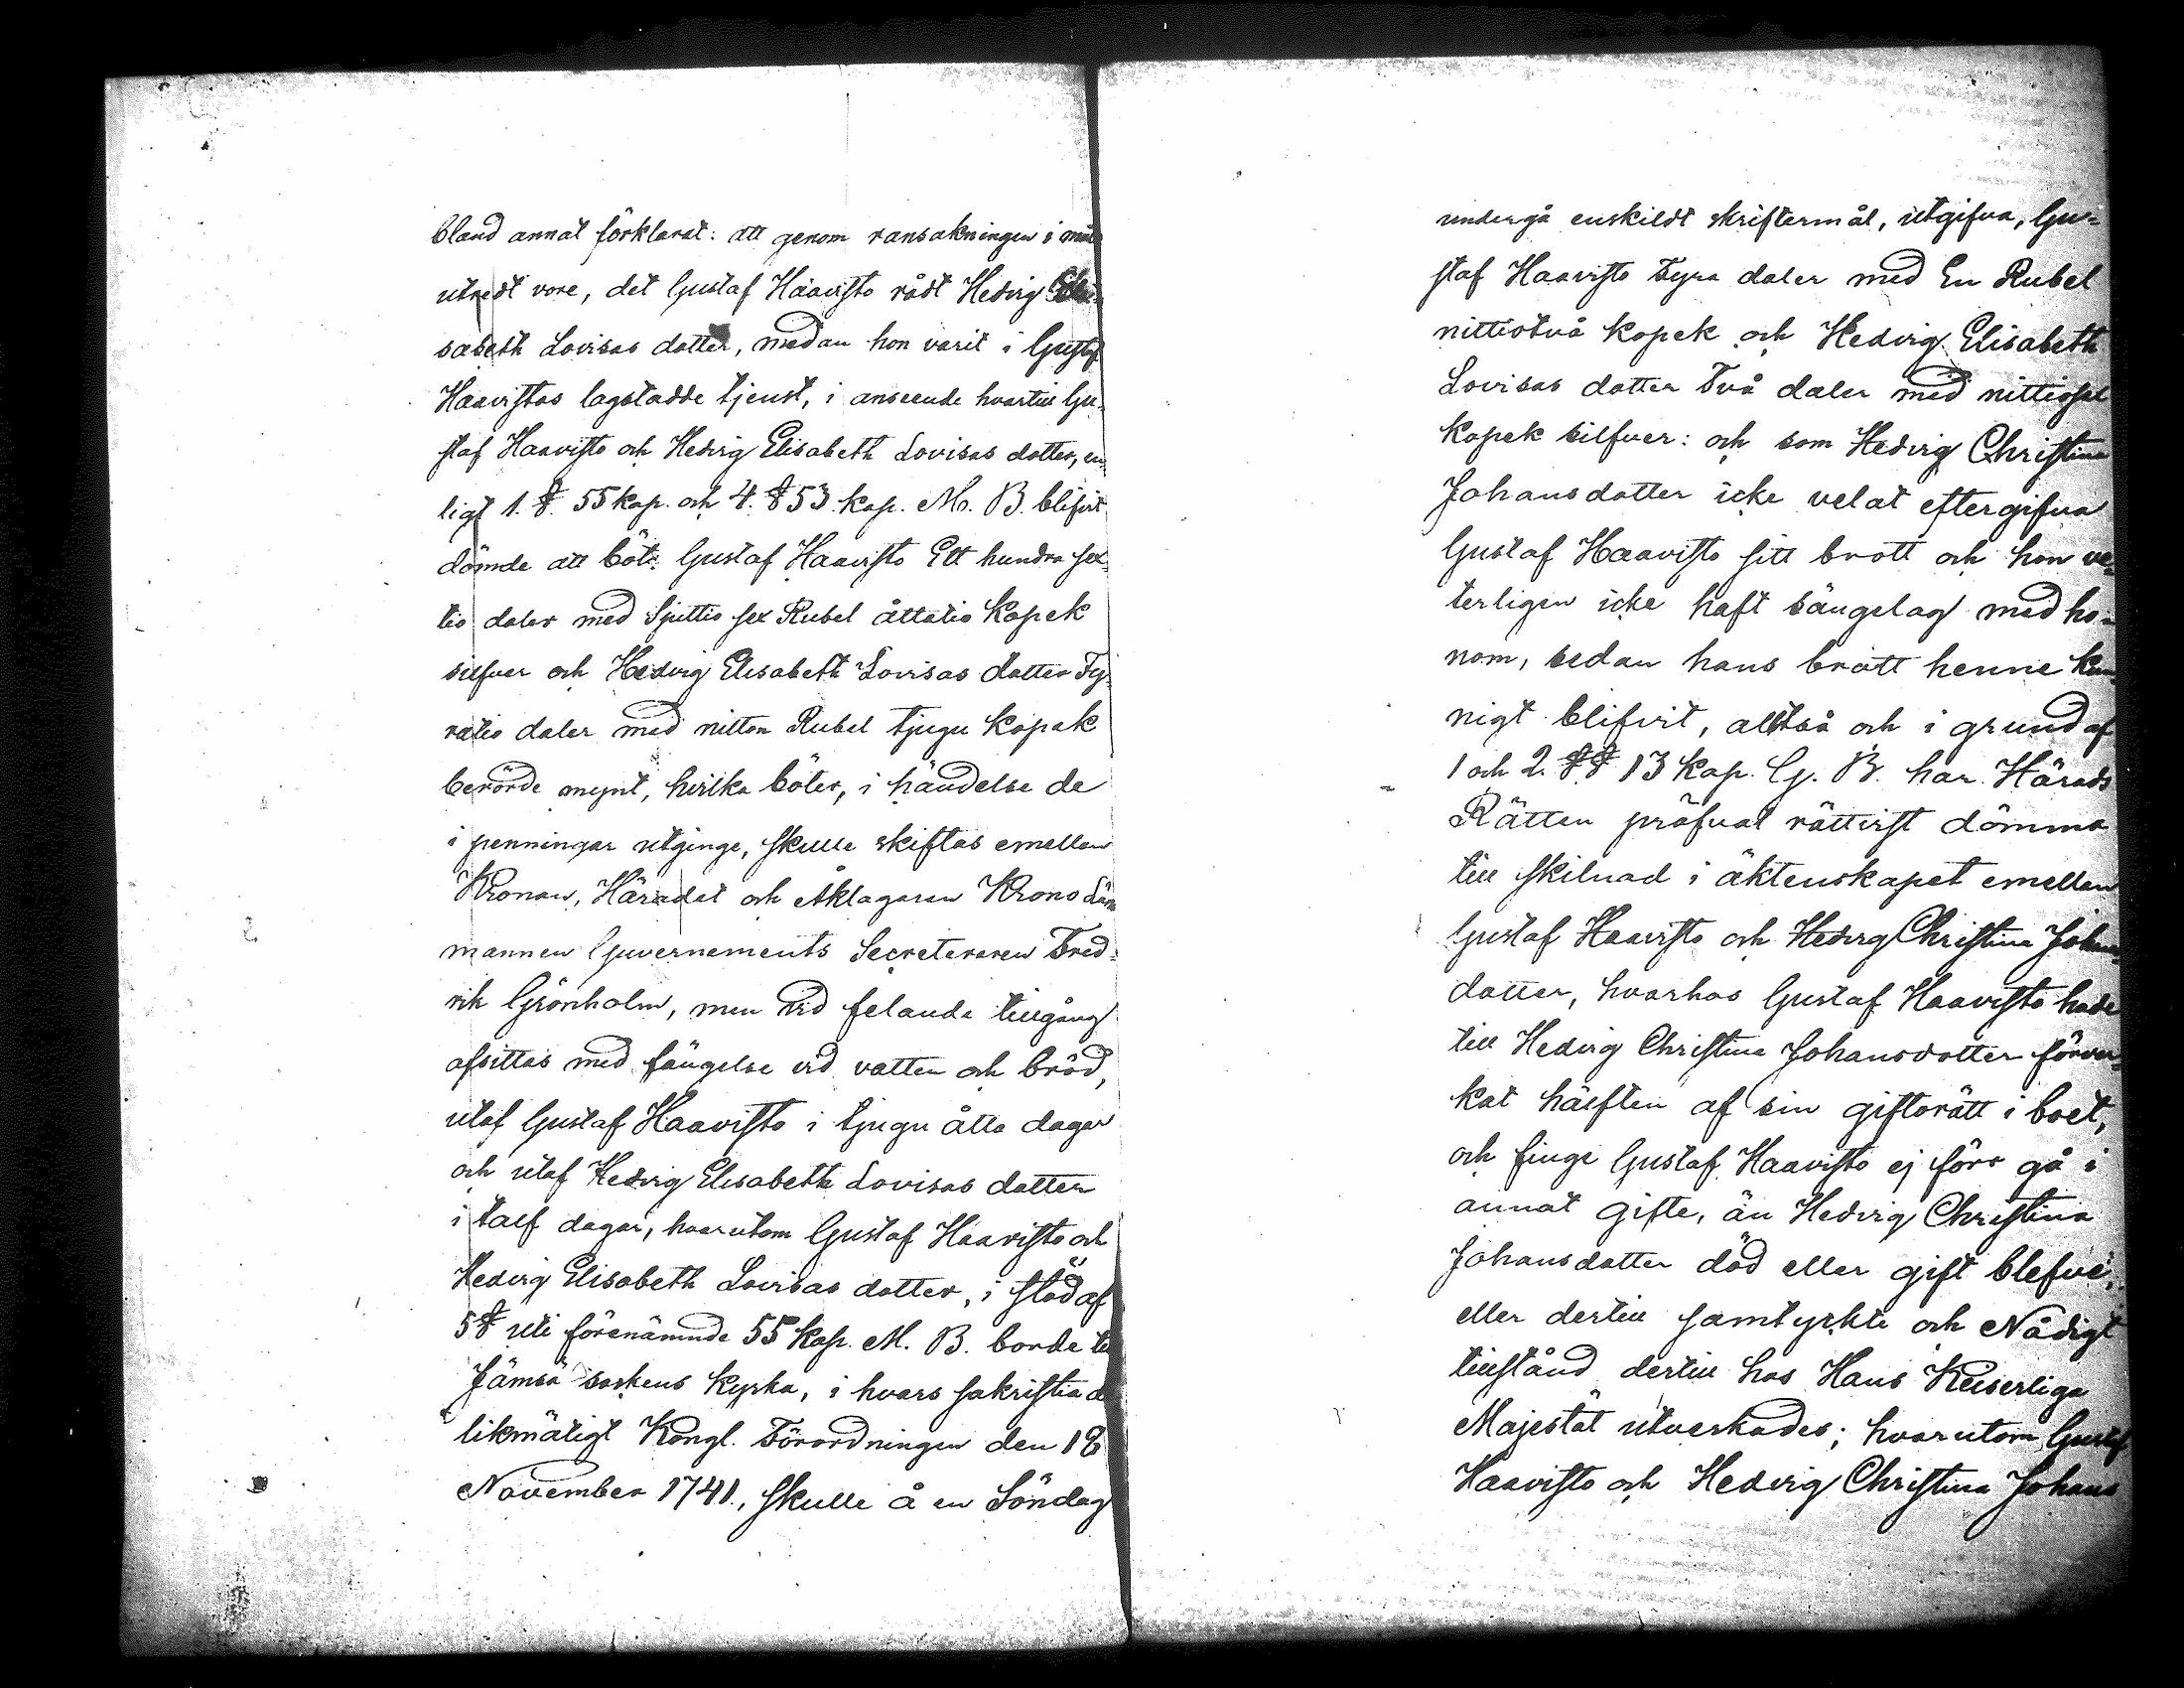 bland annat förklarat: att genom ransakningen i målet
utredt vore, det Gustaf Haavisto rådt Hedvig Eli-
sabeth Lovisas dotter, medan hon varit i Gustaf
Haavistos lagstadde tjenst, i anseende hvartill Gu-
staf Haavisto och Hedvig Elisabeth Lovisas dotter, en-
ligt 1. §. 55 kap. och 4. § 53. kap. M. B. blifvit
dömde att böta Gustaf Haavisto Ett hundra sex-
tio daler med Sjuttio sex Rubel åttatio Kopek
silfver och Hedvig Elisabeth Lovisas dotter Fy-
ratio daler med nitton Rubel tjugu Kopek
berörde mynt, hvilka böter, i händelse de
i penningar utginge, skulle skiftas emellan
Kronan, Häradet och Åklagaren Krono Läns
mannen Guvernements Secreteraren Fred-
rik Grönholm, men vid felande tillgång
afsittas med fängelse vid vatten och bröd,
utaf Gustaf Haavisto i tjugu åtta dagar
och utaf Hedvig Elisabeth Lovisas dotter
i tolf dagar, hvarutom Gustaf Haavisto och
Hedvig Elisabeth Lovisas dotter, i stöd af
5 § uti förenämnde 55 Kap. M. B. borde till
Jämsä sockens Kyrka, i hvars sakristia de
likmätigt Kongl. Förordningen den 18
November 1741., skulle å en Söndag
undergå enskildt skriftermål, utgifva, Gu-
staf Haavisto Fyra daler med En Rubel
nittiotvå kopek och Hedvig Elisabeth
Lovisas dotter Två daler med nittiosex
kopek silfver: och som Hedvig Christina
Johansdotter icke velat eftergifva
Gustaf Haavisto sitt brott och hon ve-
terligen icke haft sängelag med ho-
nom, sedan hans brott henne kun-
nigt blifvit, alltså och i grund af
1 och 2. §§ 13 Kap. G. B. har Härads
Rätten pröfvat rättvist dömma
till skilnad i äktenskapet emellan
Gustaf Haavisto och Hedvig Christina Johans-
dotter, hvarhos Gustaf Haavisto hade
till Hedvig Christina Johansdotter förver-
kat hälften af sin giftorätt i boet,
och finge Gustaf Haavisto ej förr gå i
annat gifte, än Hedvig Christina
Johansdotter död eller gift blefve,
eller dertill samtyckte och Nådigt
tillstånd dertill hos Hans Keiserliga
Majestät utverkades; hvarutom Gustaf
Haavisto och Hedvig Christina Johans